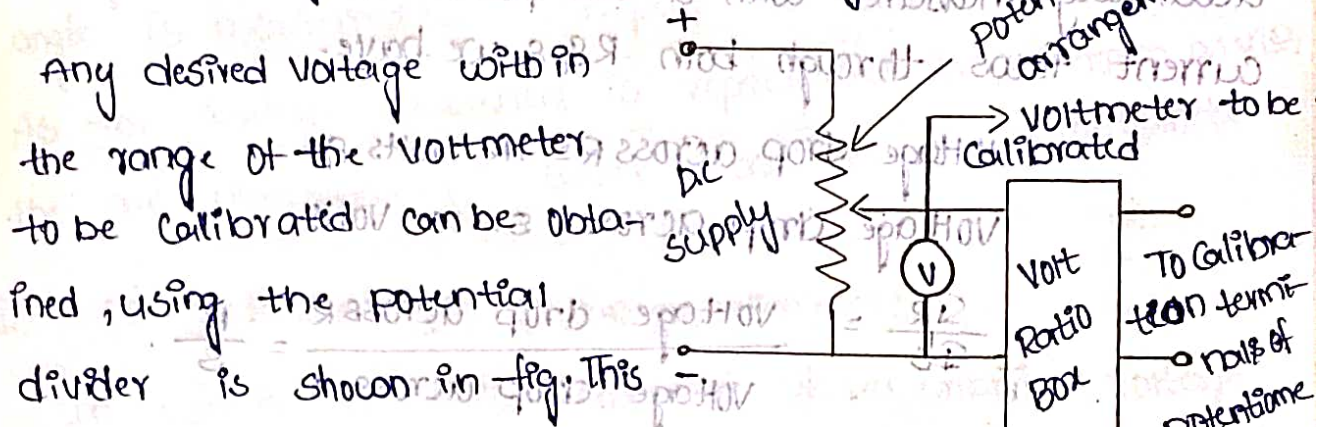 Any desired Voltage within
the range of the Voltmeter
to be Calibrated can be obta-
ined, using the potential
divider is shown in fig. This
+
D.C
supply
-
arrangem
voltmeter to be
Calibrated
V
Volt
Ratio
Box
To Calibra-
tion termi-
nals of
potentiome